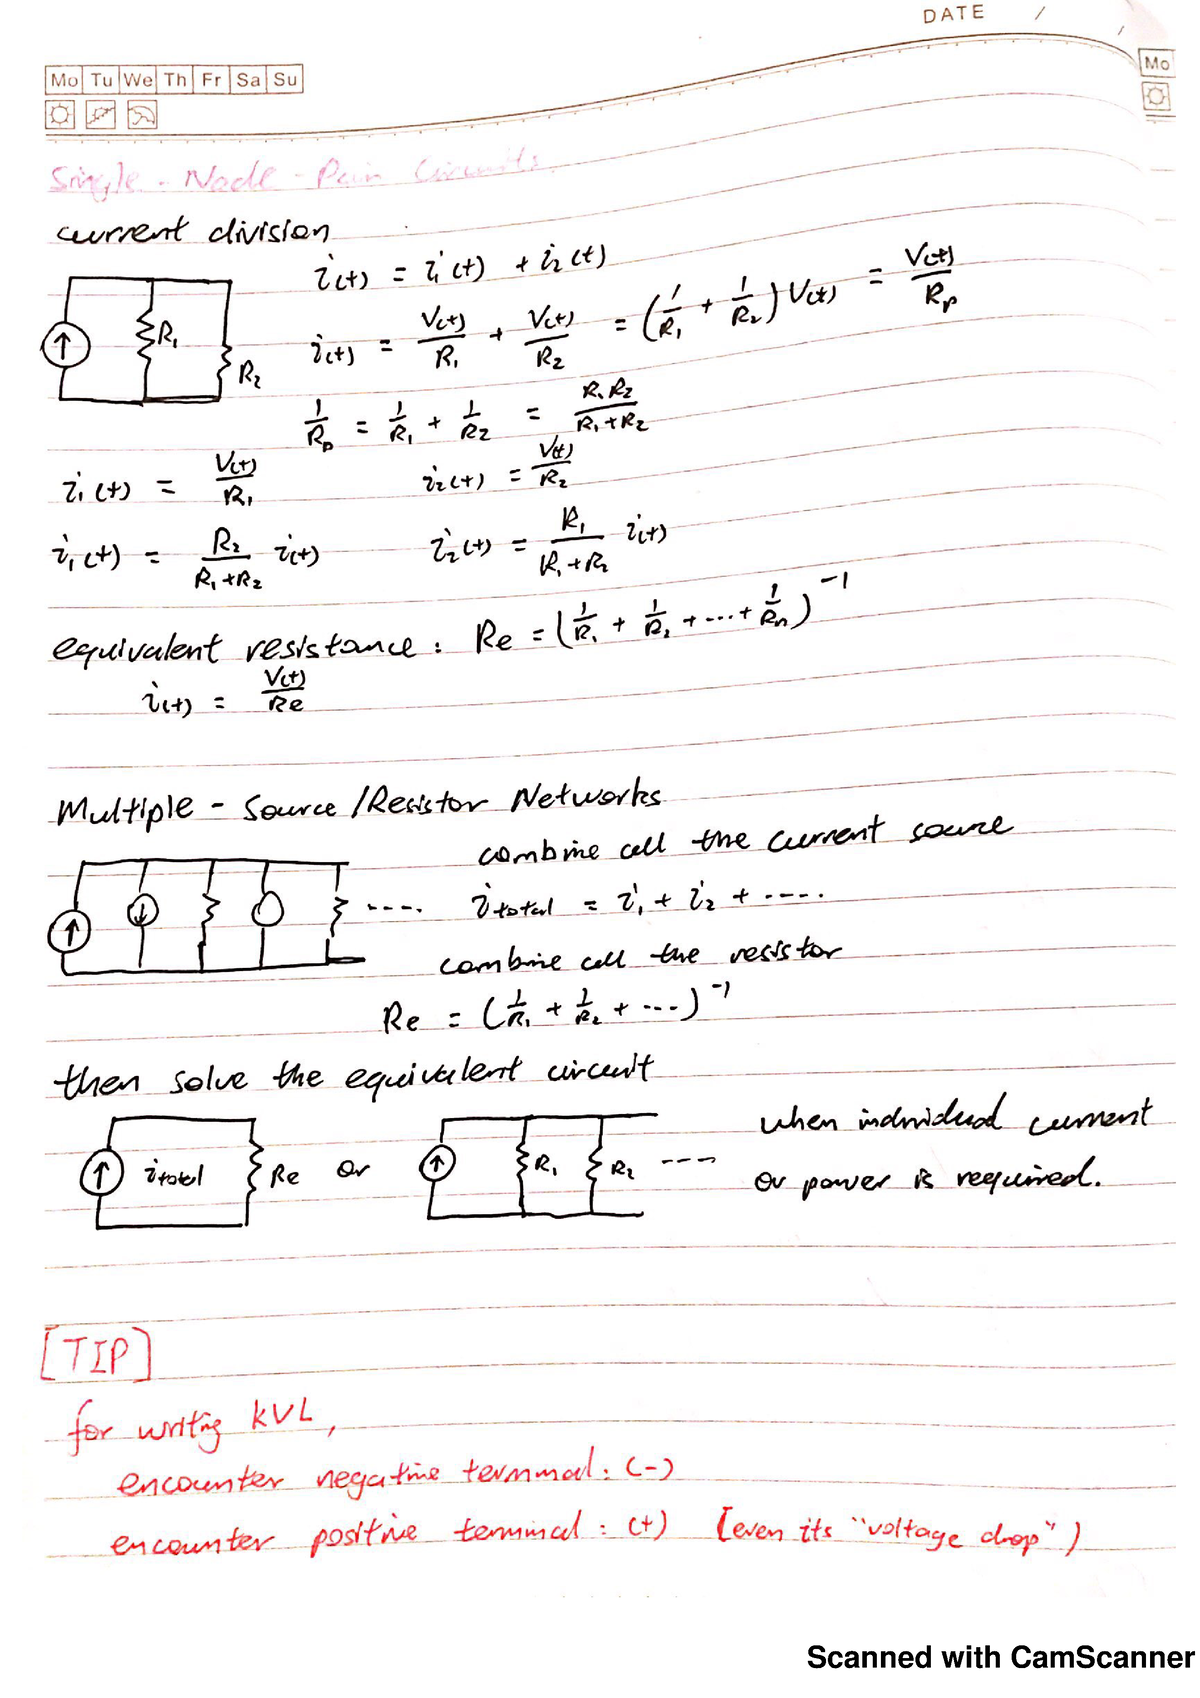 DATE / /
Mo Tu We Th Fr Sa Su
Mo
Single - Node - Pair Circuits
current division
i(t) = i₁(t) + i₂(t)
i(t) = V(t)/R₁ + V(t)/R₂ = (1/R₁ + 1/R₂) V(t) = V(t)/Rp
R₁
R₂
1/Rp = 1/R₁ + 1/R₂ = R₁R₂/(R₁+R₂)
i₁(t) = V(t)/R₁ i₂(t) = V(t)/R₂
i₁(t) = R₂/(R₁+R₂) i(t) i₂(t) = R₁/(R₁+R₂) i(t)
equivalent resistance : Re = (1/R₁ + 1/R₂ + ... + 1/Rn)⁻¹
i(t) = V(t)/Re
Multiple - Source / Resistor Networks
combine all the current source
.... i total = i₁ + i₂ + ....
combine all the resistor
Re = (1/R₁ + 1/R₂ + ...)⁻¹
then solve the equivalent circuit
when individual current
i total Re or R₁ R₂ ---
or power is required.
[TIP]
for writig KVL,
encounter negative terminal : (-)
encounter positive terminal : (+) (even its "voltage drop")
Scanned with CamScanner